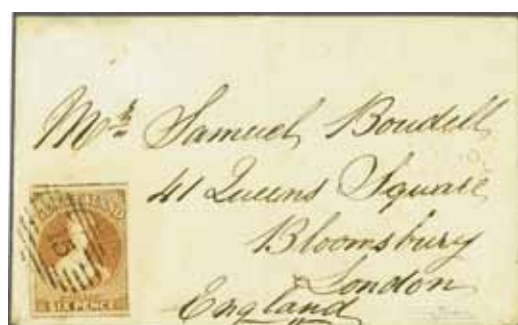 Mrs Samuel Boudell
41 Queens Square
Bloomsbury
London
England
SIX PENCE